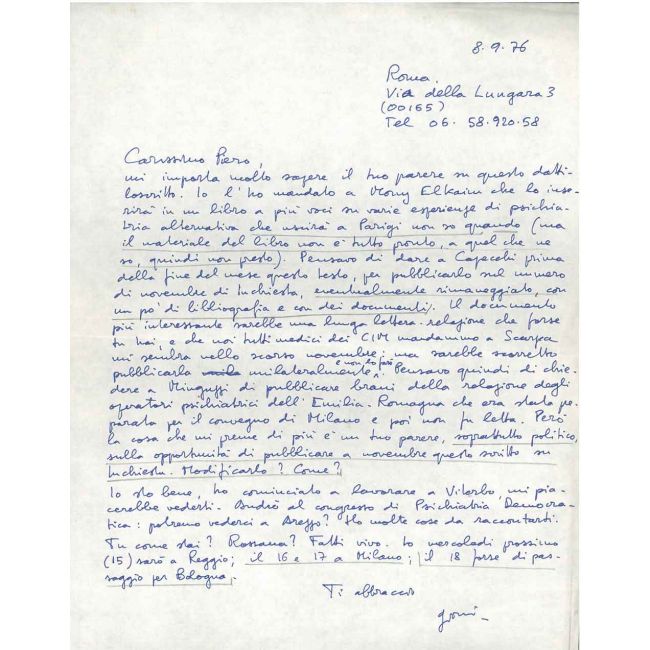 8.9.76
Roma.
Via della Lungara 3
(00165)
Tel 06. 58.920.58
Carissimo Piero,
mi importa molto sapere il tuo parere su questo datti-
loscritto. Io l'ho mandato a Mony Elkaim che lo inse-
rirà in un libro a più voci su varie esperienze di psichia-
tria alternativa che uscirà a Parigi non so quando (ma
il materiale del libro non è tutto pronto, a quel che ne
so, quindi non presto). Pensavo di dare a Capecchi prima
della fine del mese questo testo, per pubblicarlo sul numero
di novembre di Inchiesta, eventualmente rimaneggiato, con
un po' di bibliografia e con dei documenti. Il documento
più interessante sarebbe una lunga lettera-relazione che forse
tu hai, e che noi tutti medici dei CIM mandammo a Scarpa
mi sembra nello scorso novembre; ma sarebbe scorretto
pubblicarla unilateralmente e non lo farò. Pensavo quindi di chie-
dere a Minguzzi di pubblicare brani della relazione degli
operatori psichiatrici dell'Emilia-Romagna che era stata pre-
parata per il convegno di Milano e poi non fu letta. Però
la cosa che mi preme di più è un tuo parere, soprattutto politico,
sulla opportunità di pubblicare a novembre questo scritto su
Inchiesta. Modificarlo? Come?
Io sto bene, ho cominciato a lavorare a Viterbo, mi pia-
cerebbe vederti. Andrò al congresso di Psichiatria Democra-
tica: potremo vederci a Arezzo? Ho molte cose da raccontarti.
Tu come stai? Rossana? Fatti vivo. Io mercoledì prossimo
(15) sarò a Reggio; il 16 e 17 a Milano; il 18 forse di pas-
saggio per Bologna.
Ti abbraccio